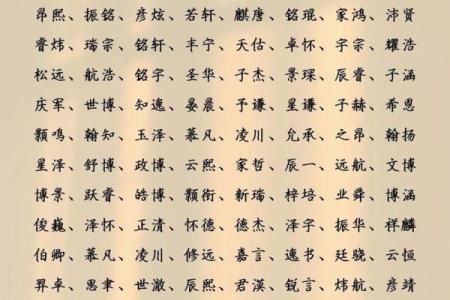 昂熙、振铭、彦炫、若轩、麒唐、铭琨、家鸿、沛贤
睿炜、瑞宗、铭轩、丰宁、天佑、卓怀、宇宗、耀浩
松远、航浩、铭宇、圣华、子杰、景琛、辰睿、子涵
庆军、世博、知逸、晏晨、予谦、星谦、子赫、希恩
颢鸣、翰知、玉泽、慕凡、凌川、允承、之昂、翰扬
星泽、舒博、政博、云熙、家哲、辰一、远航、文博
博景、跃睿、皓博、颢衔、新瑞、梓培、业舜、博涵
俊巍、泽怀、正清、怀德、德杰、泽宇、振华、祥麟
伯卿、慕凡、凌川、修远、嘉言、逸书、廷骁、云恒
昇卓、思聿、世澈、辰熙、君漠、锐言、炜航、彦靖